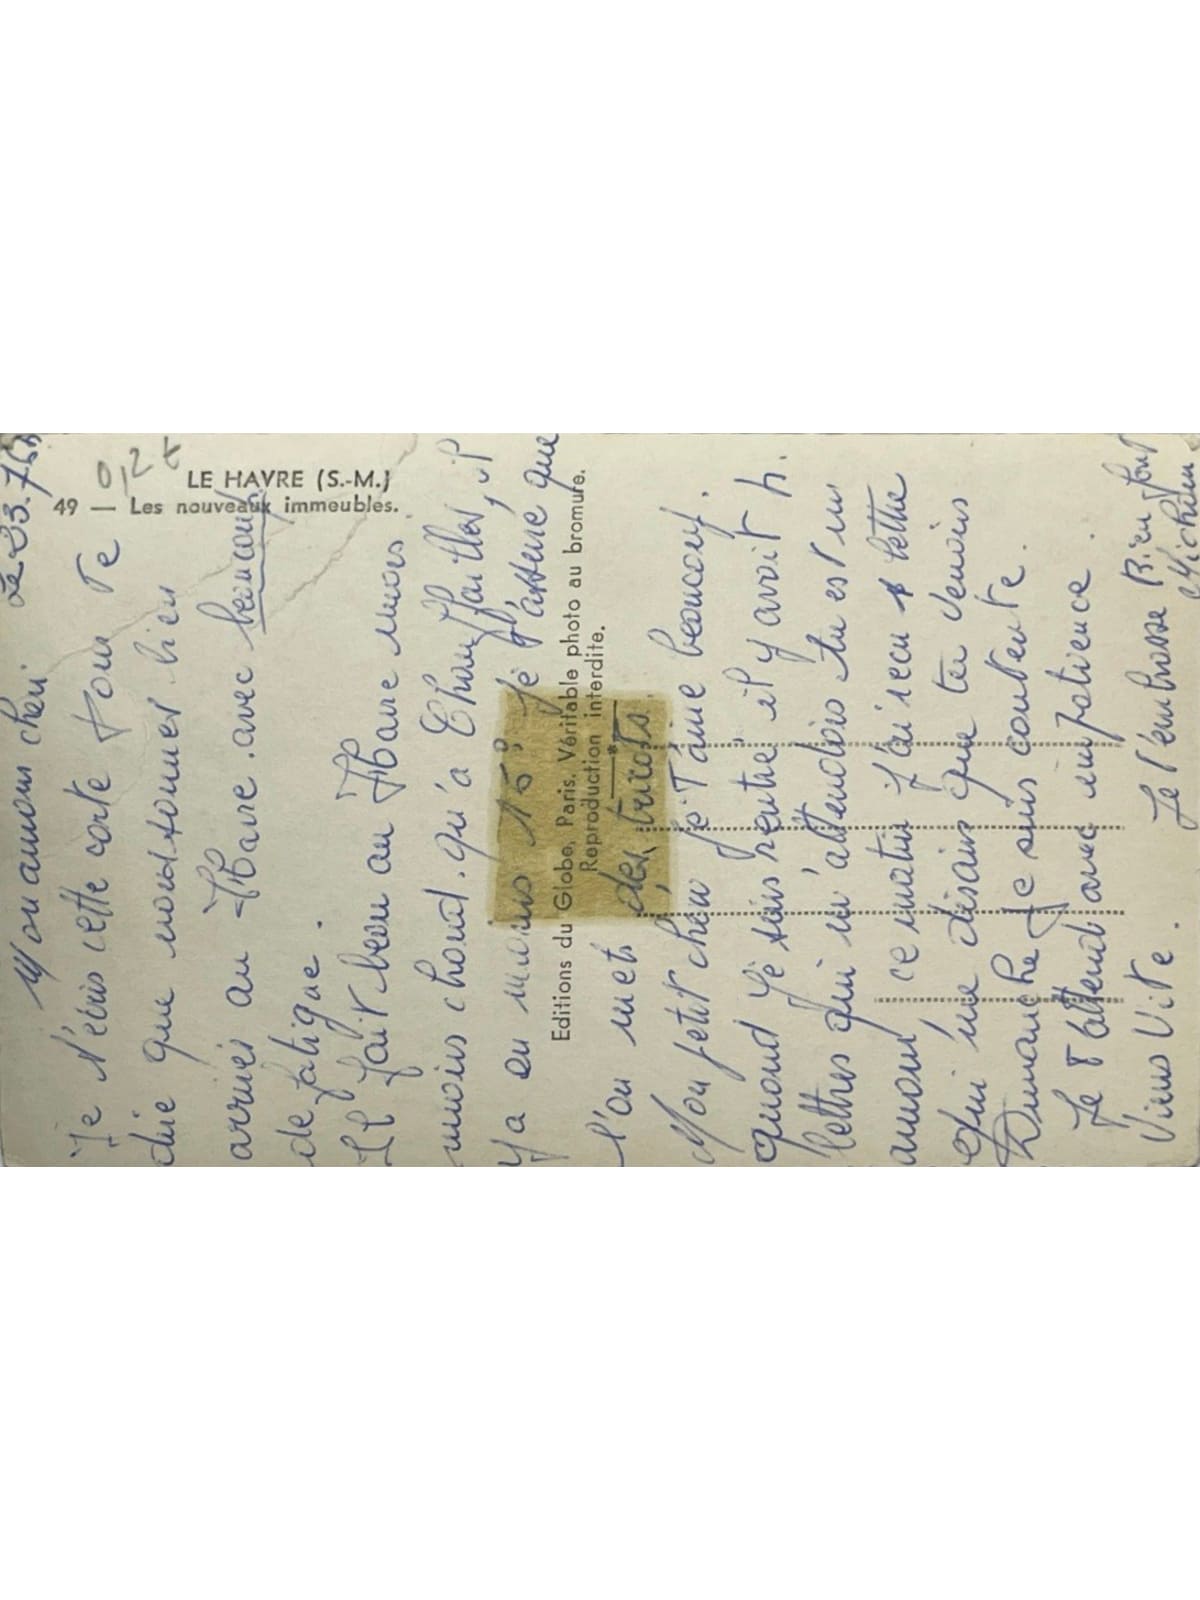 LE HAVRE (S.-M.)
49 — Les nouveaux immeubles.
0,2t
Le 23.7
Mon amour chéri
Je t'écris cette carte pour te
dire que nous sommes bien
arrivés au Havre avec beaucoup
de fatigue.
Il fait beau au Havre mais
moins chaud qu'a Chauffailles, il
y a en moins 15° je t'assure que
l'on met des tricots.
Editions du Globe, Paris. Véritable photo au bromure.
Reproduction interdite.
Mon petit chou je T'aime beaucoup.
quand je suis rentré il y avoit
lettres qui m'attendois tu est un
amour ce matin j'ai recu lettre
qui me disais que tu venais
Dimanche je suis contente.
Je t'attend avec impatience.
Viens Vite. Je t'embrasse Bien fort